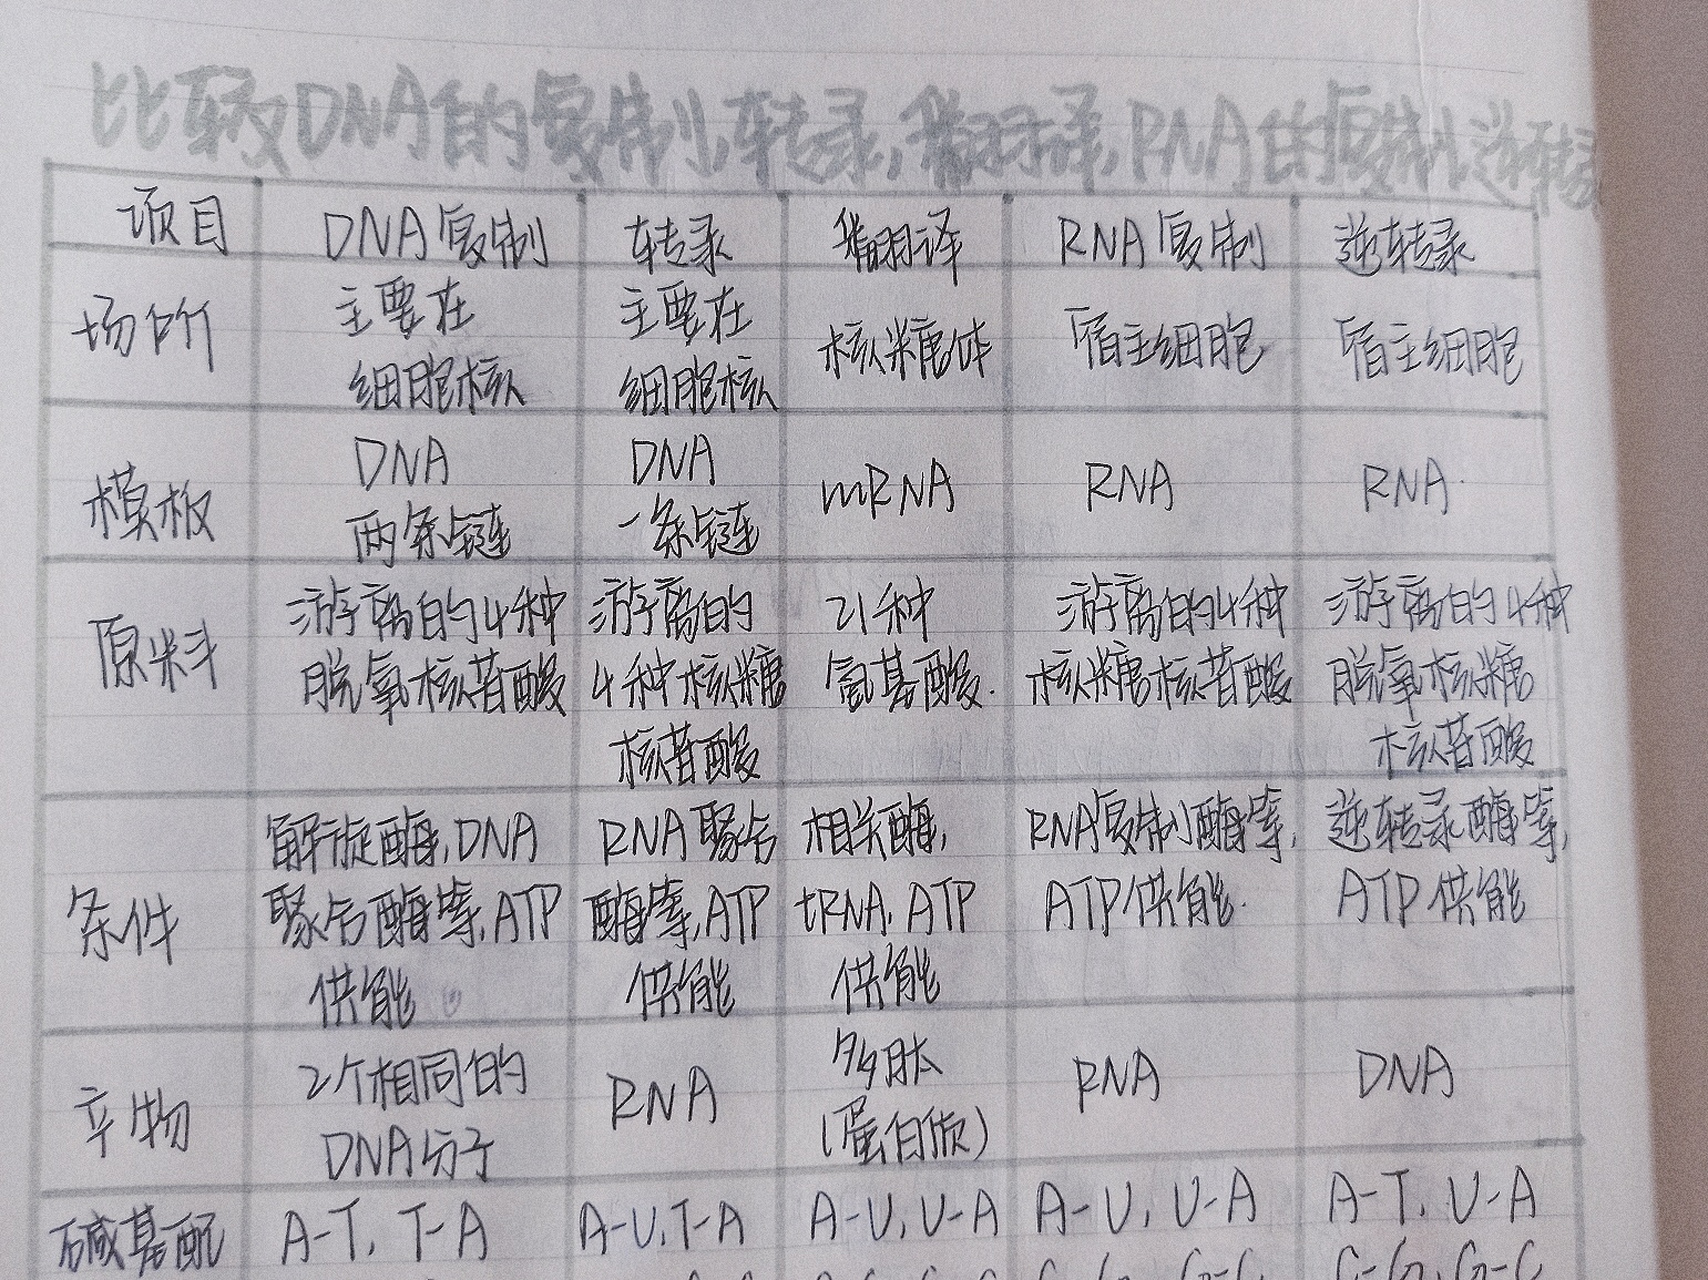 比较DNA的复制,转录,翻译,RNA的复制,逆转录
项目 DNA复制 转录 翻译 RNA复制 逆转录
场所 主要在 主要在 核糖体 宿主细胞 宿主细胞
细胞核 细胞核
模板 DNA DNA mRNA RNA RNA
两条链 一条链
原料 游离的4种 游离的 21种 游离的4种 游离的4种
脱氧核苷酸 4种核糖 氨基酸. 核糖核苷酸 脱氧核糖
核苷酸 核苷酸
条件 解旋酶,DNA RNA聚合 相关酶, RNA复制酶等, 逆转录酶等,
聚合酶等,ATP 酶等,ATP tRNA,ATP ATP供能. ATP供能
供能 供能 供能
产物 2个相同的 RNA 多肽 RNA DNA
DNA分子 (蛋白质)
碱基配 A-T, T-A A-U,T-A A-U,U-A A-U, U-A A-T, U-A
C-G, G-C